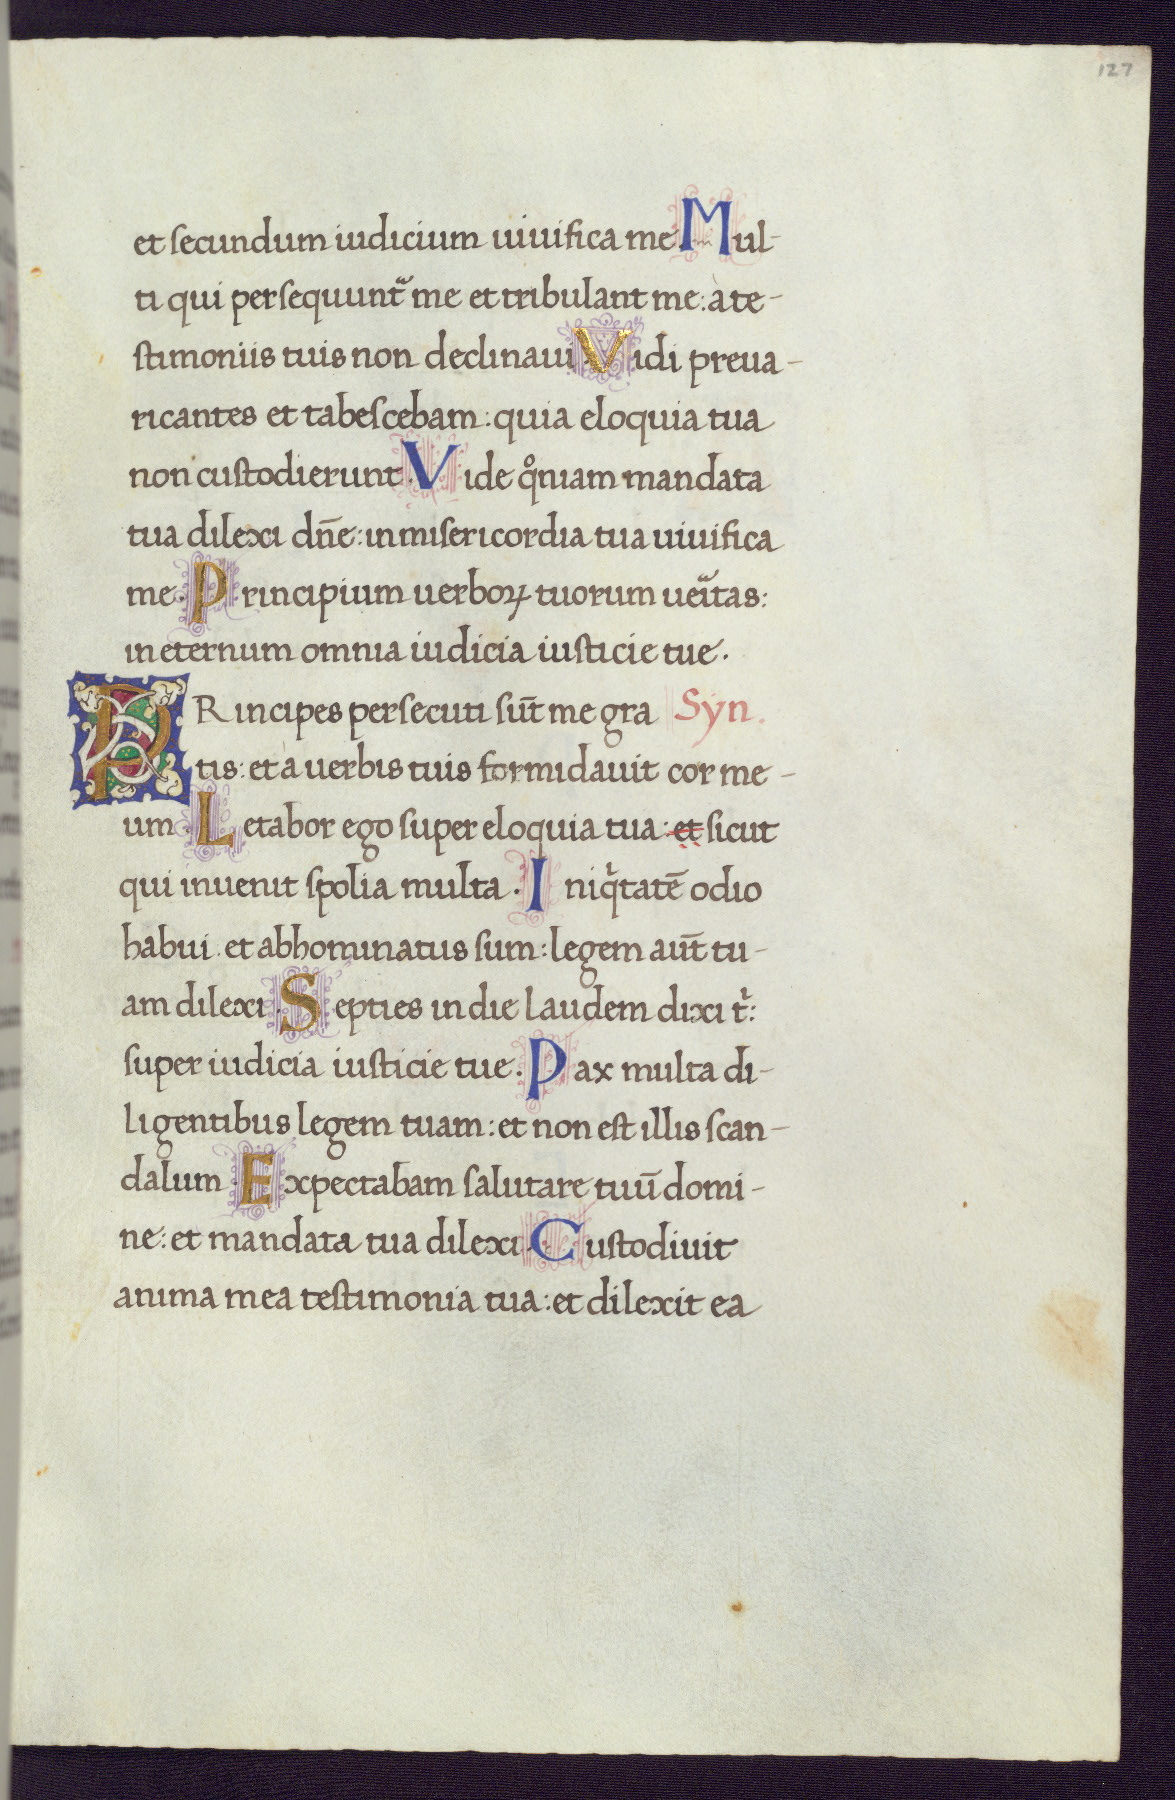 127
et secundum iudicium uiuifica me. Mul-
ti qui persequunt᷑ me et tribulant me: à te-
stimoniis tuis non declinaui. Vidi preua-
ricantes et tabescebam: quia eloquia tua
non custodierunt. Vide qͦniam mandata
tua dilexi dn̄e: in misericordia tua uiuifica
me. Principium uerboꝝ tuorum ueı̾tas:
in eternum omnia iudicia iusticie tue.
PRincipes persecuti sūt me gra Syn.
tis: et à uerbis tuis formidauit cor me-
um. Letabor ego super eloquia tua: et sicut
qui inuenit spolia multa. Iniqͥtatē odio
habui. et abhominatus sum: legem aūt tu-
am dilexi. Septies in die laudem dixi tͥ:
super iudicia iusticie tue. Pax multa di-
ligentibus legem tuam: et non est illis scan-
dalum. Expectabam salutare tuū domi-
ne: et mandata tua dilexi. Custodiuit
anima mea testimonia tua: et dilexit ea